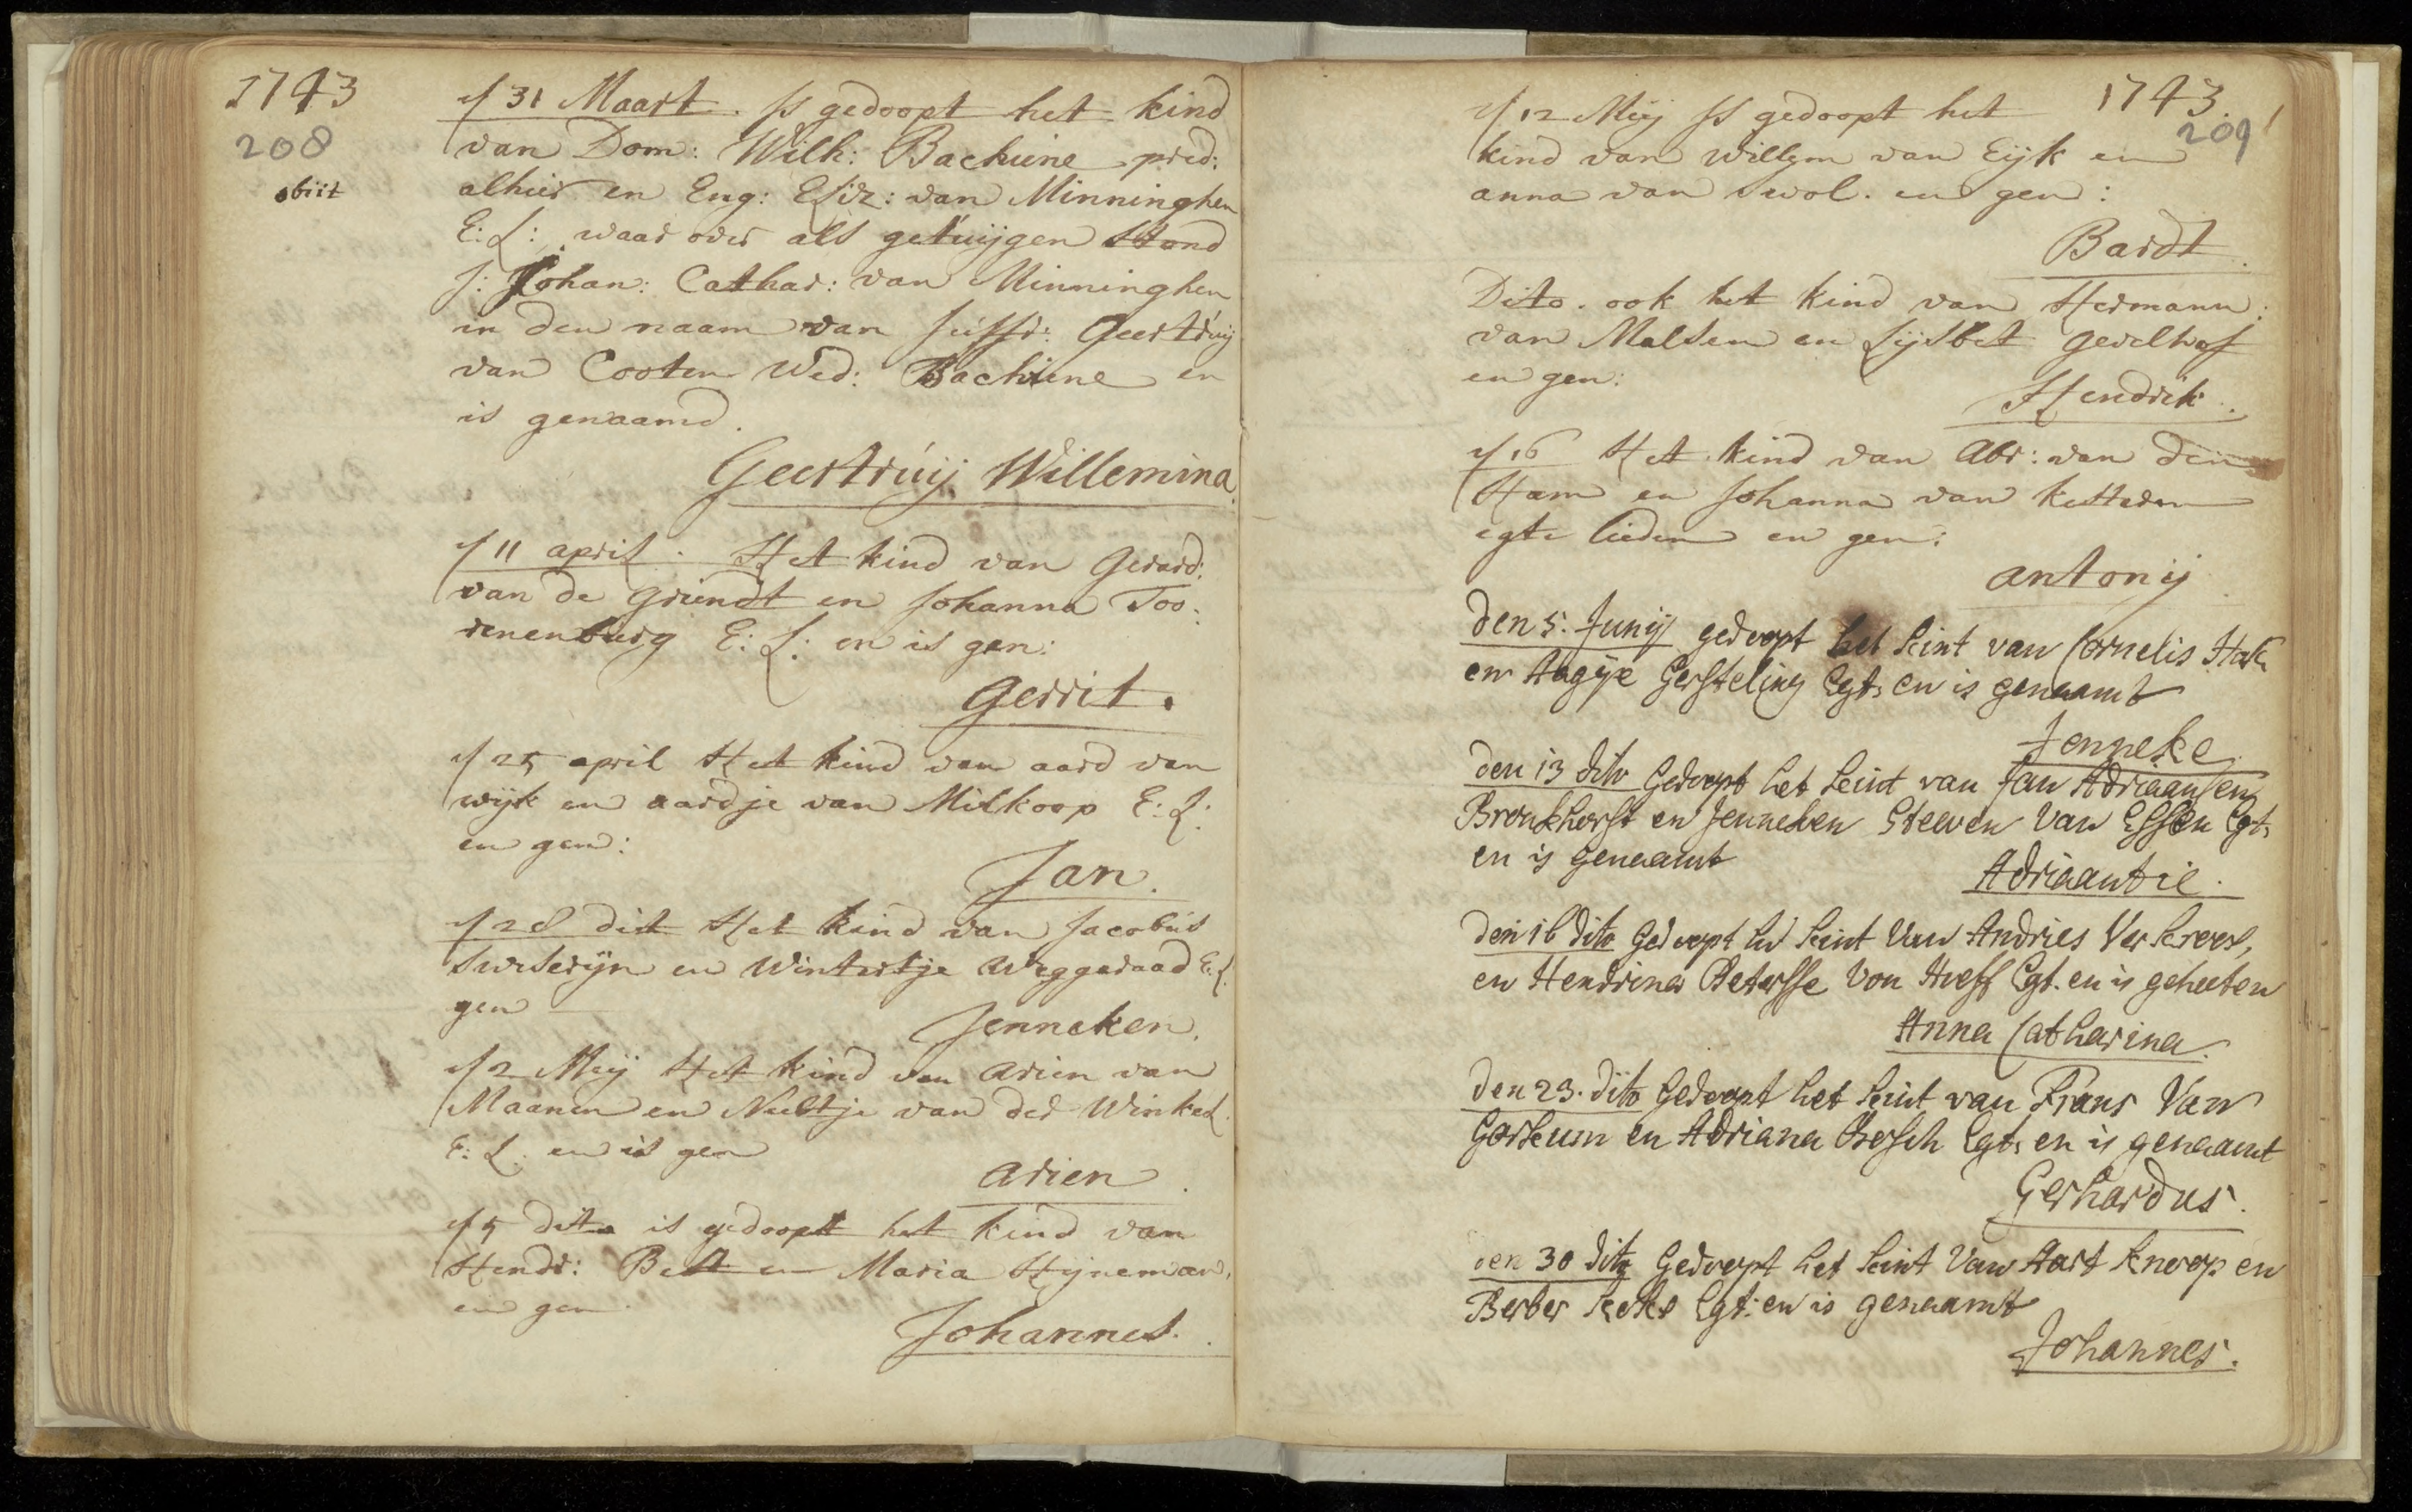 1743
208
obiit
d/31 Maart. Is gedoopt het kind
van Dom: Wilh: Bachiene pred:
alhier en Eng: Eliz: van Minninghen
E: L: waar over als getuijgen stond
J: Johan: Cathar: van Minninghen
in den naam van Juffr: Geertruij
van Cooten Wed: Bachiene en
is genaamd.
Geertruij Willemina.
d/11 april. Het kind van Gerard:
van de Griendt en Johanna Too-
renenburg E: L: en is gen:
Gerrit.
d/25 april Het kind van aard van
wijk en aardje van Milkoop E: L:
en gen:
Jan.
d/28 dit Het kind van Jacobus
Sweserijn en Wintertje Weggeraad E: L.
gen
Jenneken.
d/2 Meij Het kind van Arien van
Maanen en Neeltje van der Winkel.
E: L: en is gen
Arien.
d/5 dito is gedoopt het kind van
Hendr: Bett en Maria Hijneman.
en gen.
Johannes.
1743.
209
d/12 Meij Is gedoopt het
kind van Willem van Eijk en
anna van Swol. en gen:
Bardt.
Dito. ook het kind van Hermann:
van Malsen en Lijsbet Gevelhof
en gen:
Hendrik.
d/16 Het kind van Abr: van den
Ham en Johanna van Ketteren
egte lieden en gen:
antonij
den 5. Junij gedoopt het kint van Cornelis Hak
en Aagije Gersteling Egt. en is genaamt
Jenneke.
den 13 dito Gedoopt het kint van Jan Adriaansen
Bronkhorst en Jenneken Steeven van Essen Egt.
en is genaamt
Adriaantie.
den 16 dito Gedoopt het kint van Andries Verkroes,
en Hendrina Petersse Von Hoeff Egt. en is geheeten
Anna Catharina.
den 23. dito Gedoopt het kint van Frans Van
Gorkum en Adriana Bosch Egt. en is genaamt
Gerhardus.
den 30 dito Gedoopt het kint van Aart Knoop en
Berber Keeke Egt: en is genaamt
Johannes.